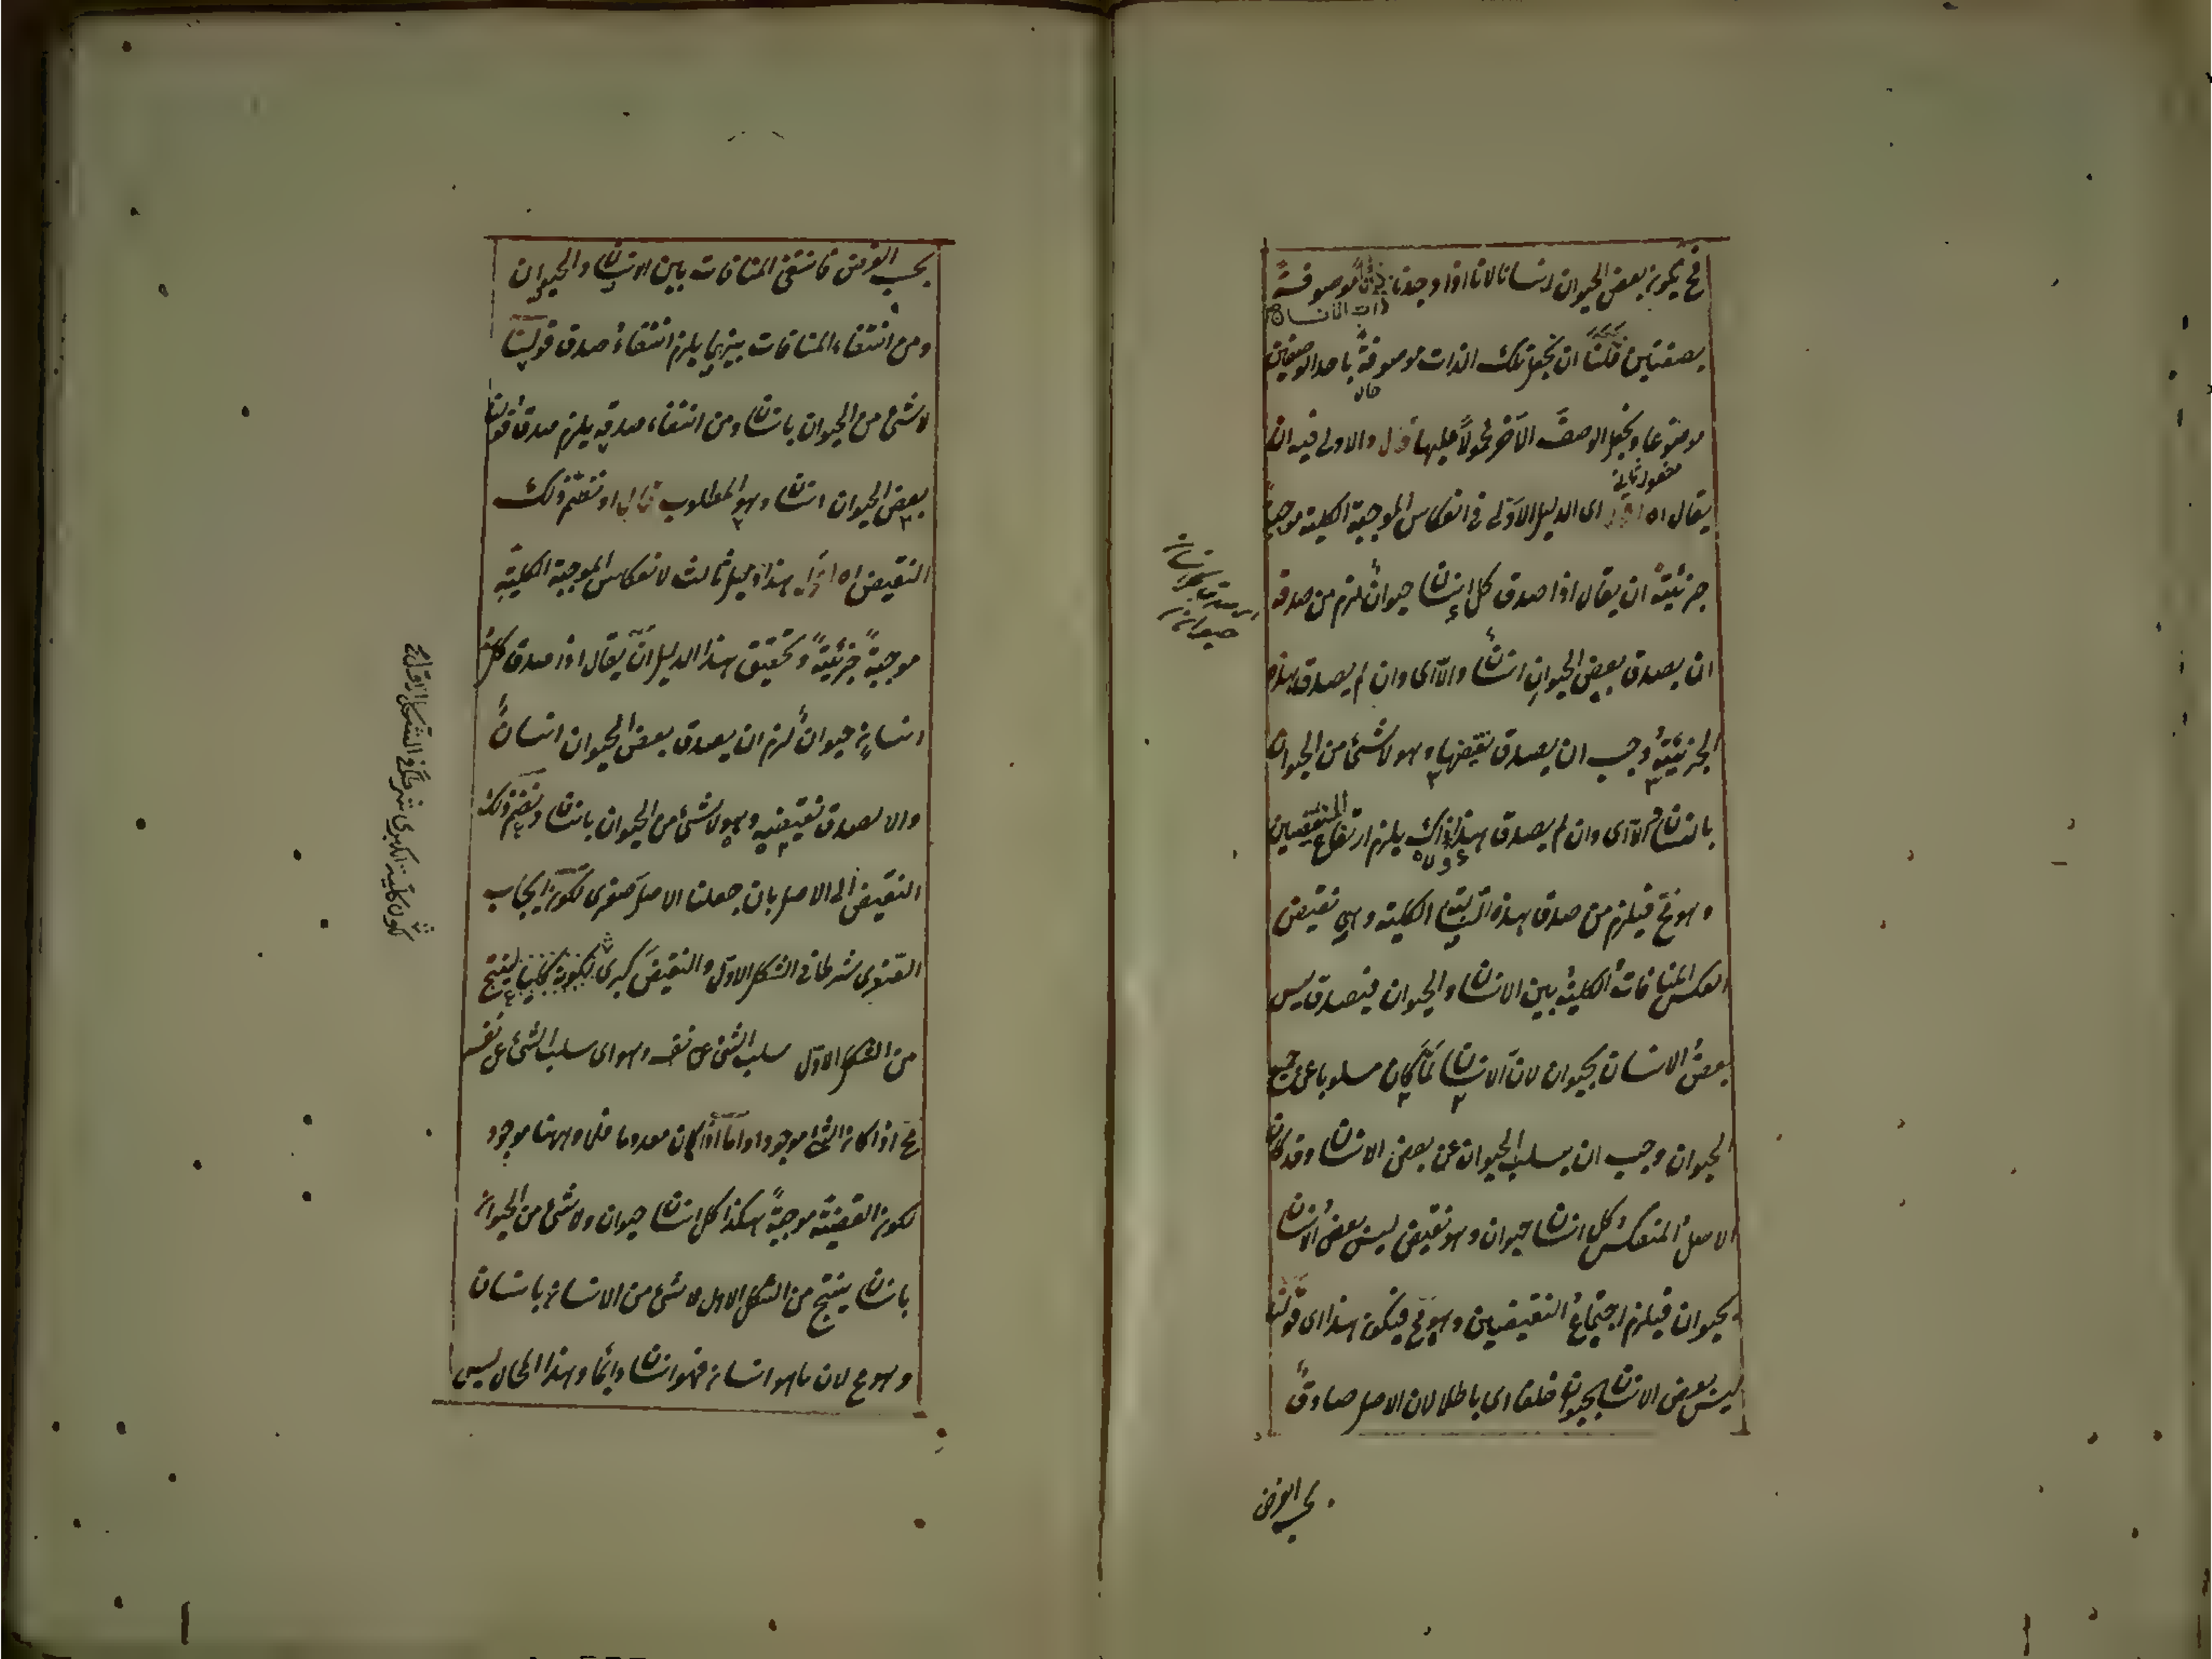 فح يكون بعض الحيوان انسانا لانا اذا وجدنا ذاتا موصوفة
ذات الانسان
بصفتين فلنا ان نجعل تلك الذات موصوفة باحد الوصفين
حال
موضوعا ونجعل الوصف الآخر محمولا عليها قال والاولى فيه ان
مفعول ثاني
يقال اه اقول اى الدليل الاولى فى انعكاس الموجبة الكلية موجبة
جزئية ان يقال اذا صدق كل انسان حيوان لزم من صدقه
ان يصدق بعض الحيوان انسان والا اى وان لم يصدق هذه
الجزئية وجب ان يصدق نقيضها وهو لا شئ من الحيوان
بانسان والا اى وان لم يصدق هذا ذاك يلزم ارتفاع النقيضين
وهو مح فيلزم من صدق هذه السالبة الكلية وهى نقيض
العكس المنافات الكلية بين الانسان والحيوان فيصدق ليس
بعض الانسان بحيوان لان الانسان لما كان مسلوبا عن جميع
الحيوان وجب ان يسلب الحيوان عن بعض الانسان وقد كان
الاصل المنعكس كل انسان حيوان وهو نقيض ليس بعض الانسان
بحيوان فيلزم اجتماع النقيضين وهو مح فيكون هذا اى قولنا
ليس بعض الانسان بحيوان خلفا اى باطلا لان الاصل صادق
بحسب الفرض
بحسب الفرض فانتفى المنافات بين الانسان والحيوان
ومن انتفاء المنافات بينهما يلزم انتفاء صدق قولنا
لا شئ من الحيوان بانسان ومن انتفاء صدقه يلزم صدق قولنا
بعض الحيوان انسان وهو المطلوب قال او نضم ذلك
النقيض اه اقول هذا دليل ثالث لانعكاس الموجبة الكلية
موجبة جزئية وتحقيق هذا الدليل ان يقال اذا صدق كل
انسان حيوان لزم ان يصدق بعض الحيوان انسان
والا لصدق نقيضه وهو لا شئ من الحيوان بانسان ونضم ذلك
النقيض الى الاصل بان جعلنا الاصل صغرى لكون ايجاب
الصغرى شرطا فى الشكل الاول والنقيض كبرى لكونه كليا لينتج
من الشكل الاول سلب الشئ عن نفسه وهو اى سلب الشئ عن نفسه
مح اذا كان الشئ موجودا واما اذا كان معدوما فلا وههنا موجود
لكون القضية موجبة هكذا كل انسان حيوان ولا شئ من الحيوان
بانسان ينتج من الشكل الاول لا شئ من الانسان بانسان
وهو مح لان ما هو انسان فهو انسان دائما وهذا المحال ليس